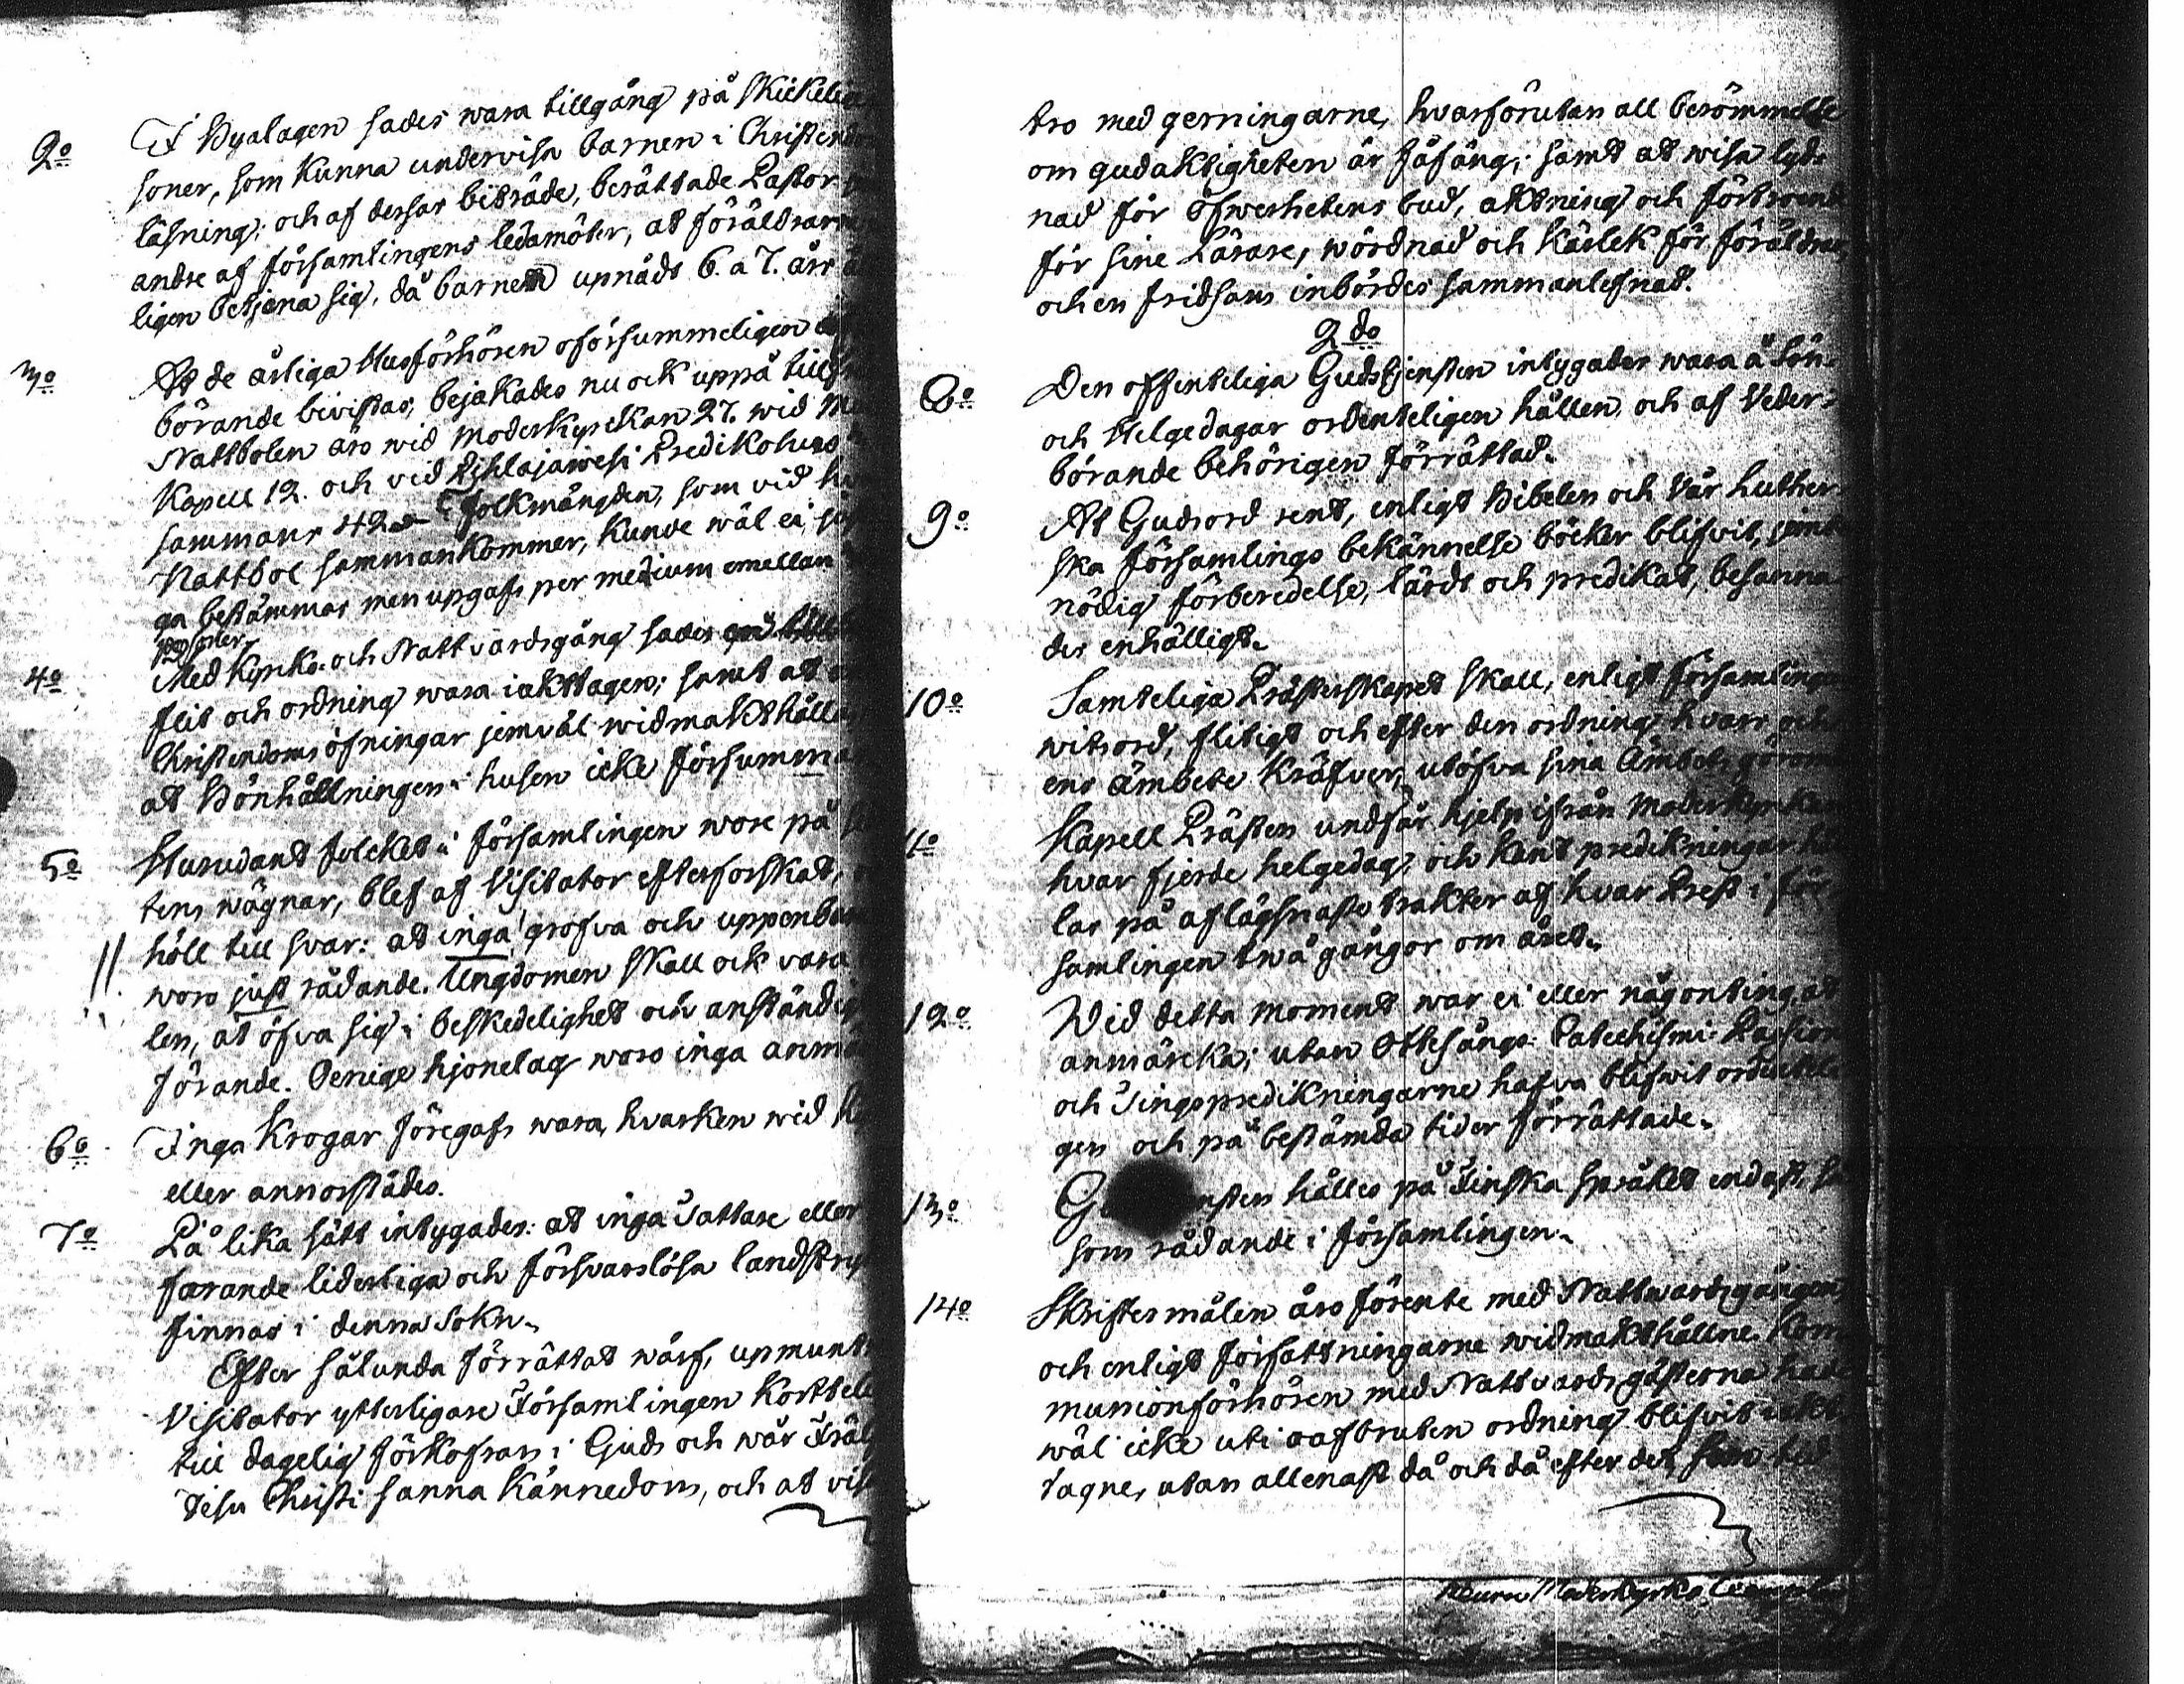 2o I Byalagen sades wara tillgång på skickelige
soner, som kunna undervisa barnen i Christendo
läsning; och af dessas biträde, berättade Pastor
andre af församlingens ledamöter, at föräldrarne
ligen betjena sig, då barnen upnådt 6. a 7. års
3o At de årliga Husförhören oförsummeligen
börande bivistas, bejakades nu ock uppå tillf
Nattbolen äro wid Moderkyrckan 27. wid
Kapell 12. och vid Pihlajawesi Predikohus
sammans 42. Folkmängden, som vid
Nattbol sammankommer, kunde wäl ei
ga bestämmas men upgafs per medium emellan
personer
4o Med Kyrko- och Nattvardsgång sades
flit och ordning wara iakttagen; samt at
Christendoms öfningar jemväl widmakthållas
at Bönhållningen i husen icke försummas
5o Hurudant folcket i församlingen wore på
tens wägnar, blef af Visitator efterforskat,
höll till svar: at inga grofva och uppenbar
woro just rådande. Ungdomen skall ock vara
len, at öfva sig i beskedelighet och anständig
förande. Oenige hjonelag woro inga anmä
6o Inga Krogar föregafs wara, hvarken wid
eller annorstädes.
7o På lika sätt intygades: at inga Tattare eller
farande liderliga och försvarslösa landstry
finnas i denna Sokn.
Efter sålunda förrättat wärf, upmunt
Visitator ytterligare Församlingen kortteli
till dagelig förkofran i Guds och wår Fräl
Jesu Christi sanna kännedom, och at vis
tro med gerningarne, hvarförutan all berömmelse
om gudaktigheten är fåfäng; samt at wisa lyd-
nad för öfwerhetens bud, aktning och förtroende
för sine Lärare, wördnad och kärlek för föräldrar,
och en fridsam inbördes sammanlefnad.
2do
8o Den offenteliga Gudstjensten intygades wara å Sön-
och Helgedagar ordenteligen hållen, och af Veder-
börande behörigen förrättad.
9o At Guds ord rent, enligt Bibelen och vår Luther-
ska Församlings bekännelse böcker blifvit, jemte
nödig förberedelse, lärdt och predikat, besanna-
des enhälligt.
10o Samteliga Prästerskapet skall, enligt församlingens
witsord, flitigt och efter den ordning hvars och
ens ämbete kräfver, utöfva sina Ämbets göromål
11o Kapell Prästen undfår hjelp ifrån Moderkyrkan
hvar fjerde helgedag, och Kant predikningar hål
las på aflägsnaste trakter af hvar Prest i för
samlingen twå gångor om året.
12o Wid detta moment war ei eller någonting at
anmärcka; utan Ottesångs- Catechismi- Passions
och Tingspredikningarne hafva blifwit ordentteli
gen och på bestämda tider förrättade.
13o Gu nsten hålles på Finska språket endast, så
som rådande i församlingen.
14o Skriftermålen äro förente med Nattwardsgången,
och enligt författningarne widmakthållne. Kom-
munionförhören med Nattvardsgästerna hade
wäl icke uti oafbruten ordning blifvit iakt-
tagne, utan allenast då och då efter det, som tid
Keuru Moderkyrko